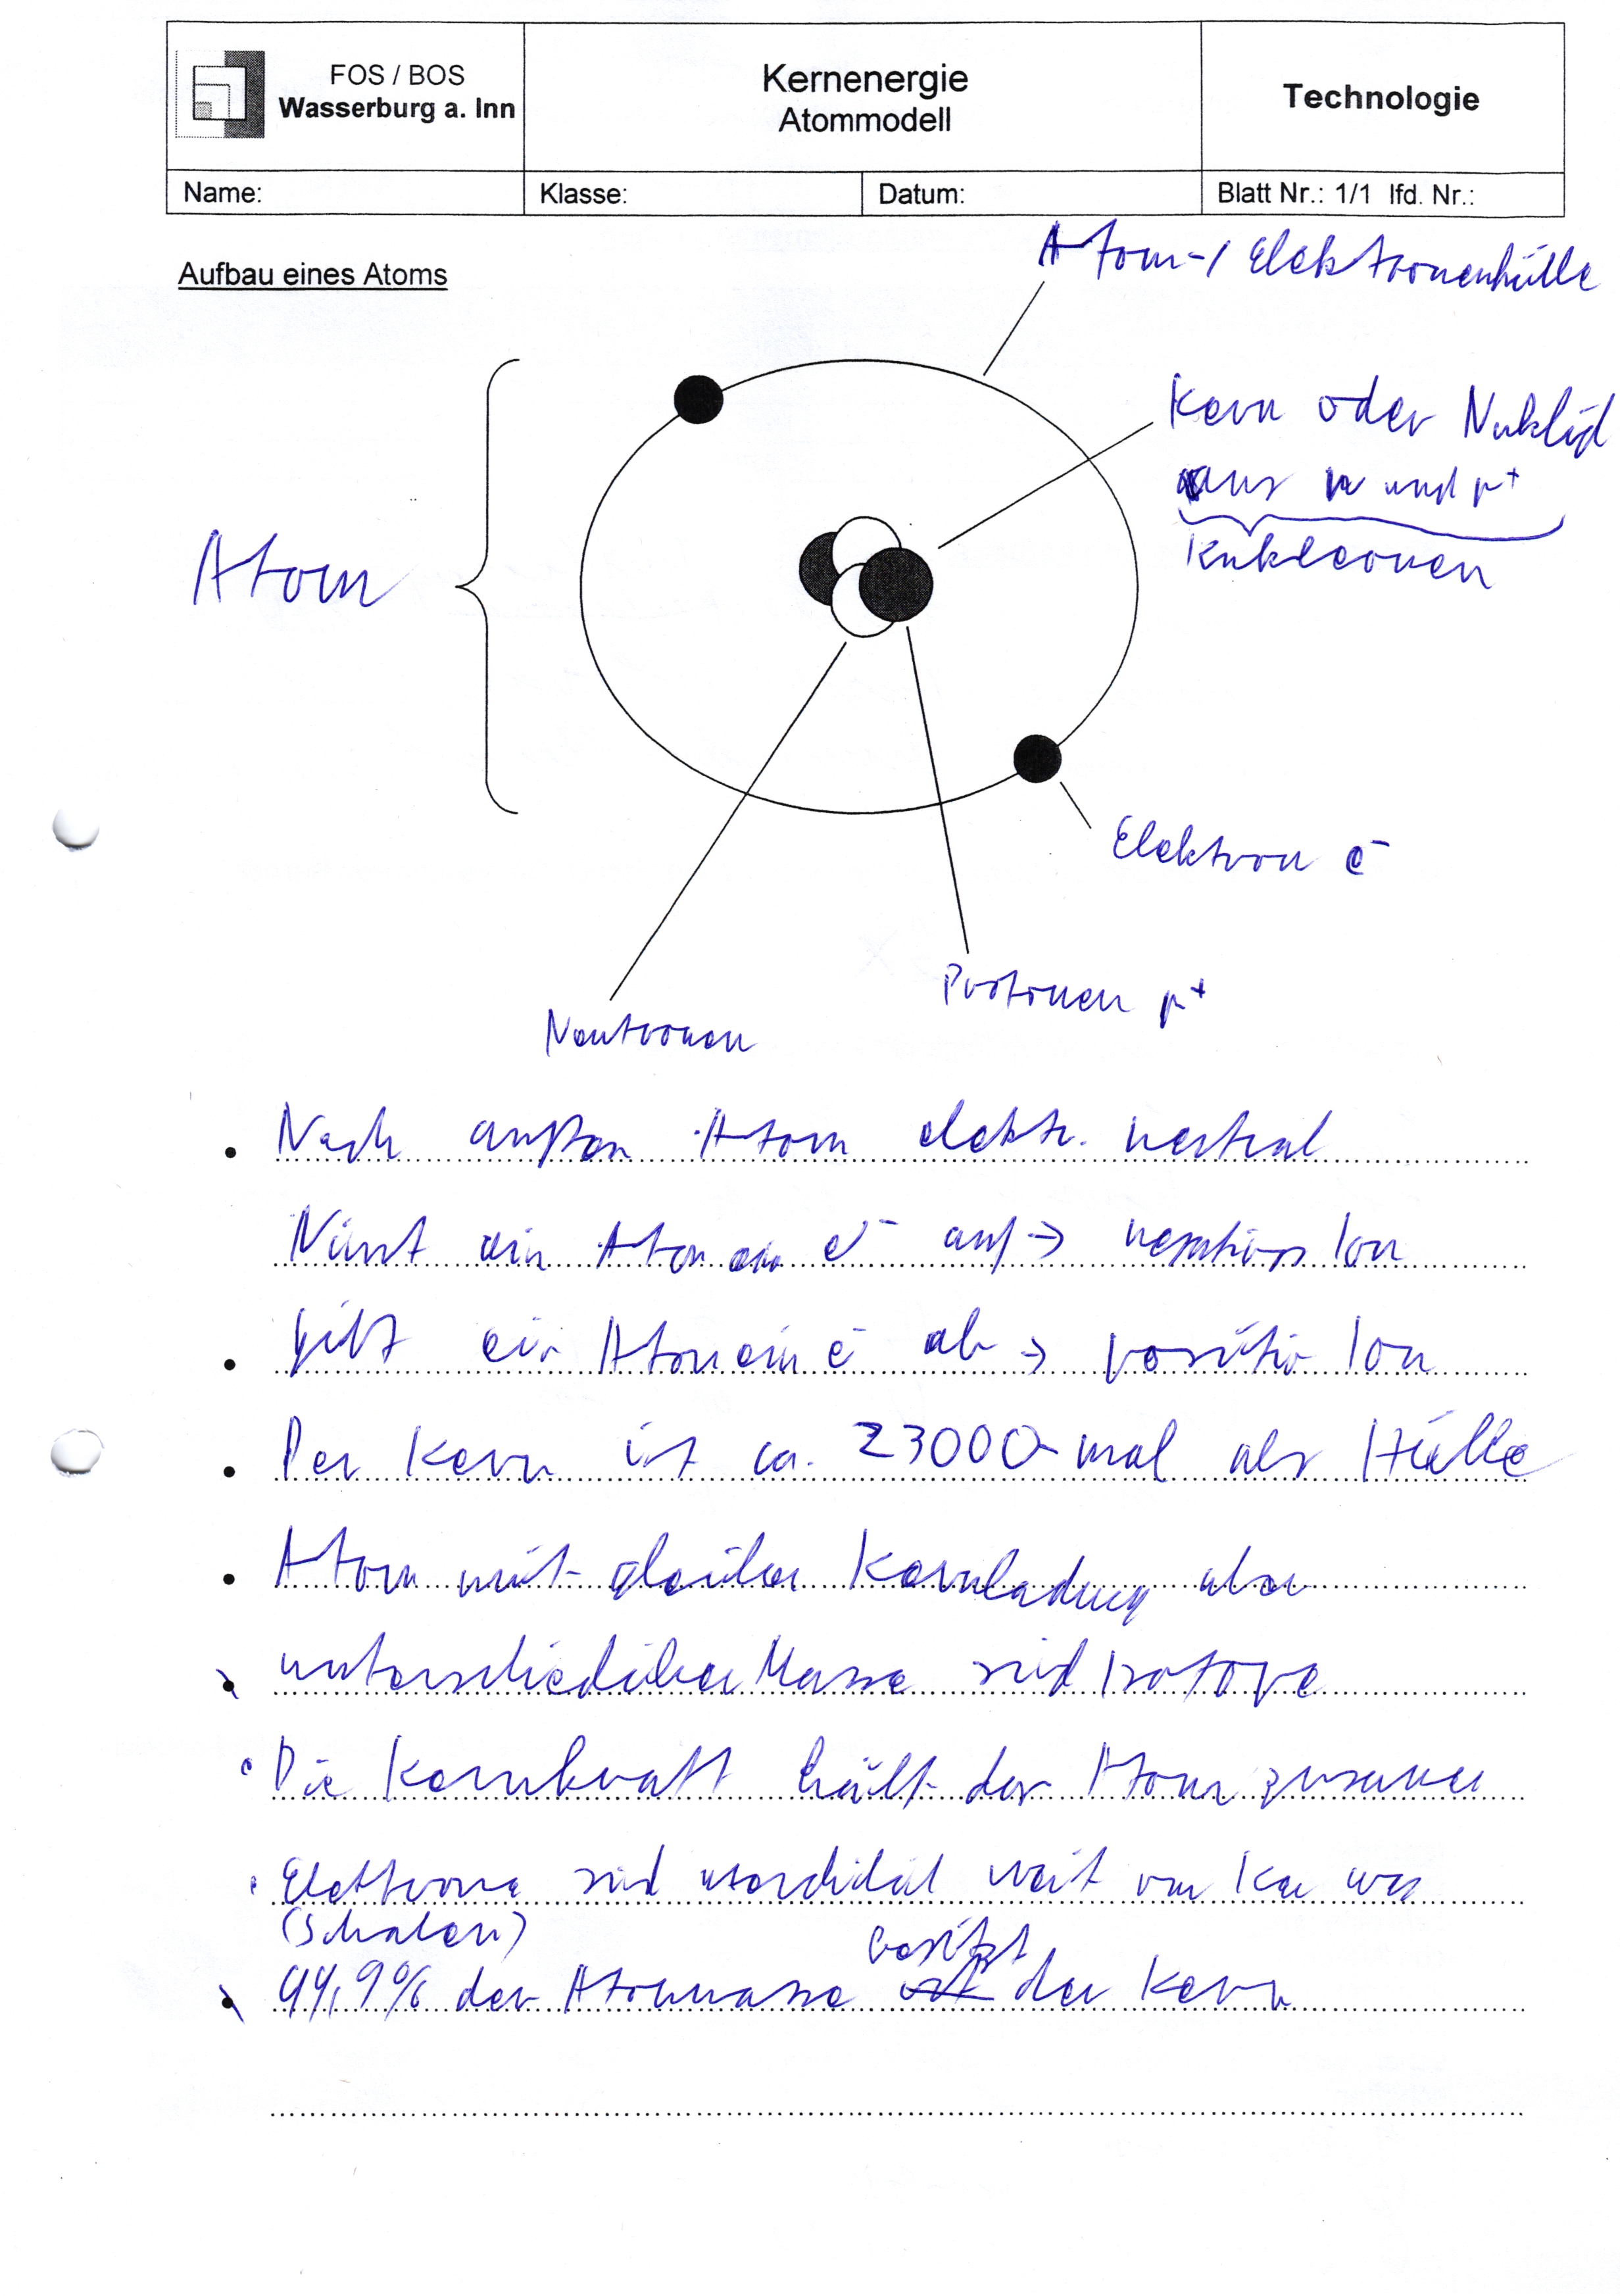 FOS / BOS
Wasserburg a. Inn
Kernenergie
Atommodell
Technologie
Name:
Klasse:
Datum:
Blatt Nr.: 1/1 lfd. Nr.:
Aufbau eines Atoms
Atom-/Elektronenhülle
Kern oder Nuklid
aus n und p+
Nukleonen
Atom
Elektron e-
Protonen p+
Neutronen
• Nach außen Atom elektr. neutral
Nimt ein Atom ein e- auf → negativs Ion
• gibt ein Atom ein e- ab → positiv Ion
• Der Kern ist ca. 23000-mal als Hülle
• Atom mit gleicher Kernladung aber
• unterschiedlicher Masse sind Isotope
• Die Kernkraft hält das Atom zusammen
• Elektrone sind weit vom weg
(Schalen)
besitzt
• 99,9% der Atommasse der Kern